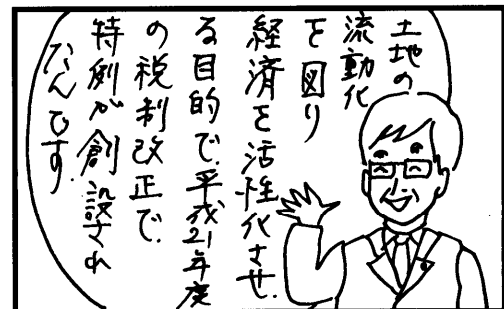 土地の
流動化
を図り
経済を活性化させ、
る目的で、平成21年度
の税制改正で、
特例が創設され
たんです。